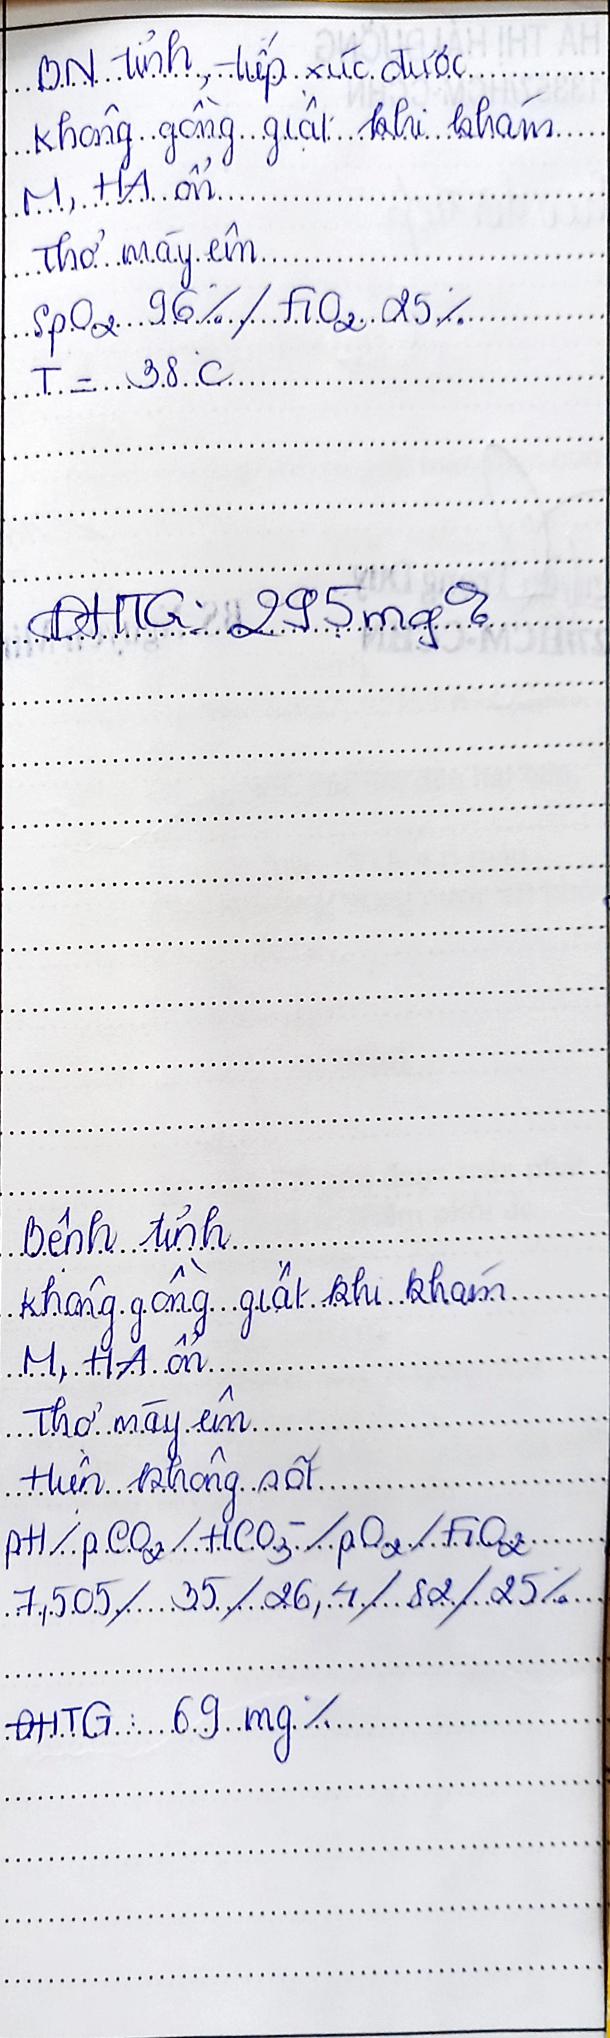 BN tỉnh, tiếp xúc được
Không gồng giật khi khám
M, HA ổn
Thở máy êm
SpO2 96% / FiO2 25%
T = 38°C
ĐHTG: 295mg%
Bệnh tỉnh
Không gồng giật khi khám
M, HA ổn
Thở máy êm
Hiện không sốt
pH / pCO2 / HCO3⁻ / pO2 / FiO2
7,505 / 35 / 26,4 / 82 / 25%
ĐHTG: 69 mg%